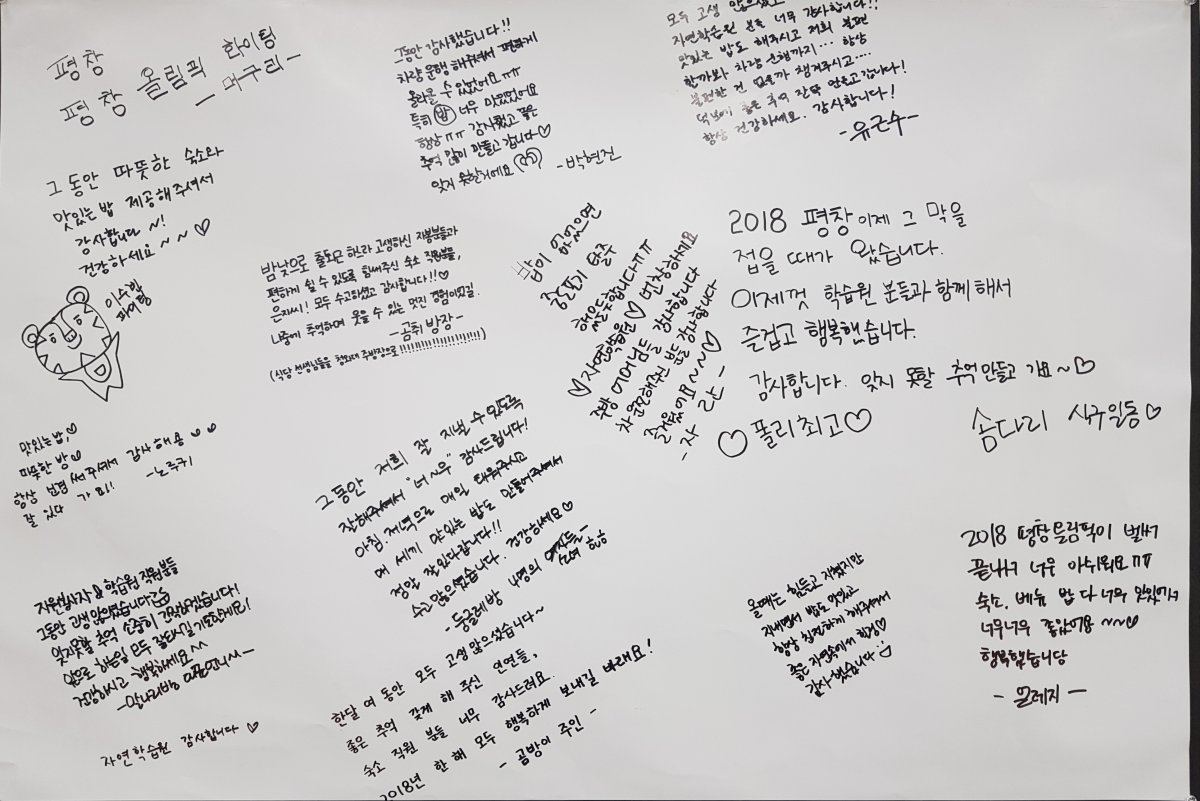 평창
평창 올림픽 화이팅
- 머구리 -
그동안 감사했습니다!!
차량 운행 해주셔서 편하게
올라올 수 있었어요 ㅠㅠ
특히 밥 너무 맛있었어요
항상 ㅠㅠ 감사했고 좋은
추억 많이 만들고 갑니다♡
잊지 못할거에요
- 박현진
모두 고생 많으셨고
자연학습원 분들 너무 감사합니다!!
맛있는 밥도 해주시고 저희 불편
할까봐 차량 운행까지… 항상
불편한 건 없을까 챙겨주시고…
덕분에 좋은 추억 잔뜩 만들고 갑니다!
항상 건강하세요. 감사합니다!
- 유근수 -
그동안 따뜻한 숙소와
맛있는 밥 제공해주셔서
감사합니다 ~!
건강하세요 ~ ~ ♡
이수학
밤낮으로 출퇴근 하느라 고생하신 자봉분들과
편하게 쉴 수 있도록 힘써주신 숙소 직원분들,
은자씨! 모두 수고하셨고 감사합니다!!♡
나중에 추억하며 웃을 수 있는 멋진 경험이었길.
- 곰취 방장 -
(식당 선생님들을 청와대 주방장으로!!!!!!!!!!!!!!!!!!!!)
밥이 맛있으면
중은포기 탈주
했을듯합니다ㅠㅠ
♡자연학습원♡ 번창하세요
주방 어머님들 감사합니다
차 운전해주신 분들 감사합니다
즐거웠어요~~~♡
- 자 란 -
2018 평창 이제 그 막을
접을 때가 왔습니다.
이제껏 학습원 분들과 함께 해서
즐겁고 행복했습니다.
감사합니다. 잊지 못할 추억 만들고 가요~♡
♡폴리최고♡
솜다리 식구일동♡
맛있는밥,♡
따뜻한 방♡
항상 신경 써주셔서 감사해용 ♡♡
잘 있다 가요!!
- 노루귀
그동안 저희 잘 지낼 수 있도록
잘해주셔서 "너~무" 감사드립니다!
아침, 저녁으로 매일 태워주시고
매 세끼 맛있는 밥도 만들어주셔서
정말 잘있다갑니다!!
수고 많으셨습니다. 건강하세요♡
- 둥굴레방 4명의 소녀들 -
자원봉사자 & 학습원 직원분들
그동안 고생 많으셨습니다
잊지못할 추억 소중히 간직하겠습니다!
앞으로 하는일 모두 잘되시길 기도할게요!
건강하시고 행복하세요^^
자연학습원 감사합니다 ♡
한달 여 동안 모두 고생 많으셨습니다~
좋은 추억 갖게 해 주신 인연들,
숙소 직원 분들 너무 감사드려요.
2018년 한 해 모두 행복하게 보내길 바래요!
- 곰방이 주인 -
올때는 힘들고 지쳤지만
지내면서 밥도 맛있고
항상 친절하게 해주셔서
좋은 자연속에서 힐링♡
감사했습니다
2018 평창올림픽이 벌써
끝나서 너무 아쉬워요ㅠㅠ
숙소, 메뉴 밥 다 너무 맛있어서
너무너무 좋았어용 ~~♡
행복했습니당
- 물레지 -